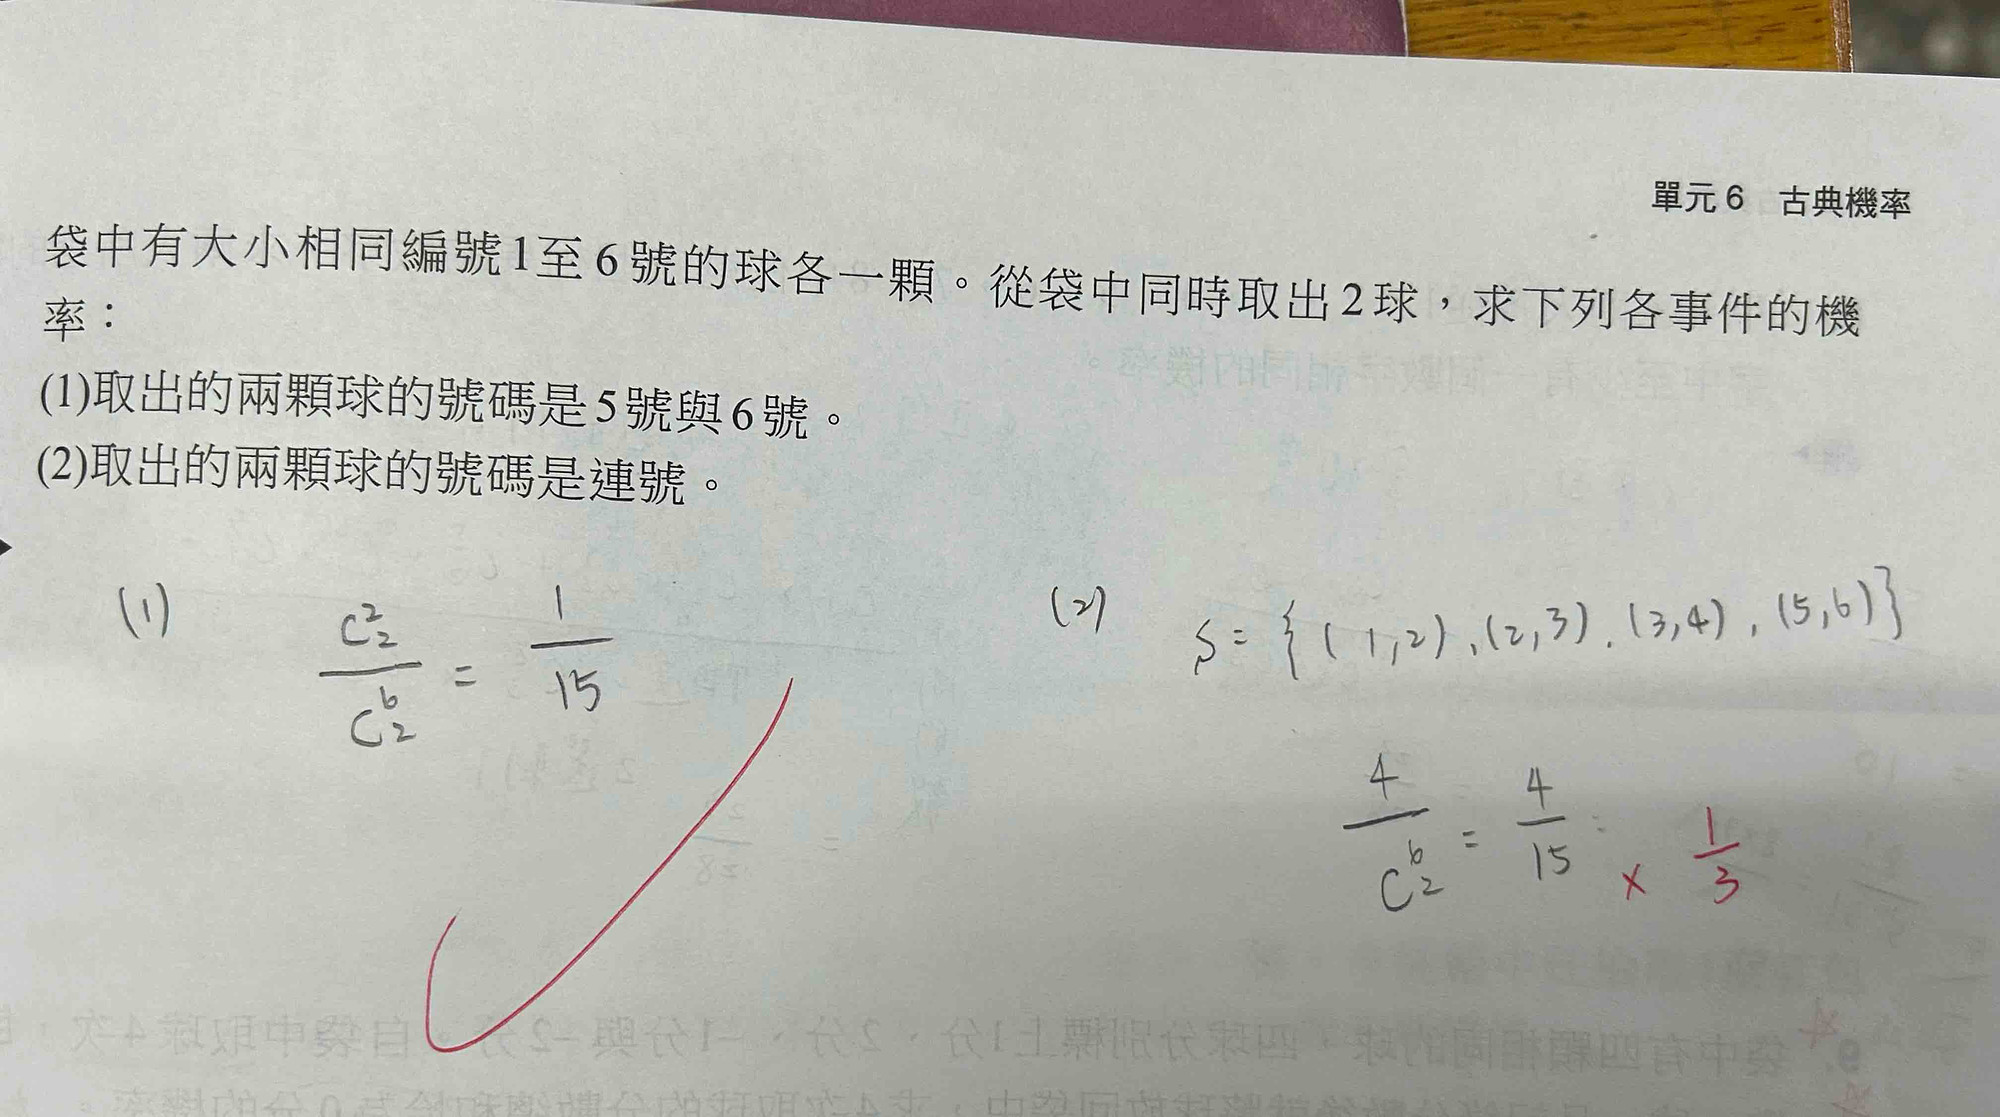 單元6 古典機率
袋中有大小相同編號1至6號的球各一顆。從袋中同時取出2球,求下列各事件的機
率:
(1)取出的兩顆球的號碼是5號與6號。
(2)取出的兩顆球的號碼是連號。
(1) C²₂ / C⁶₂ = 1/15
(2) S = {(1,2),(2,3),(3,4),(5,6)}
4 / C⁶₂ = 4/15 × 1/3